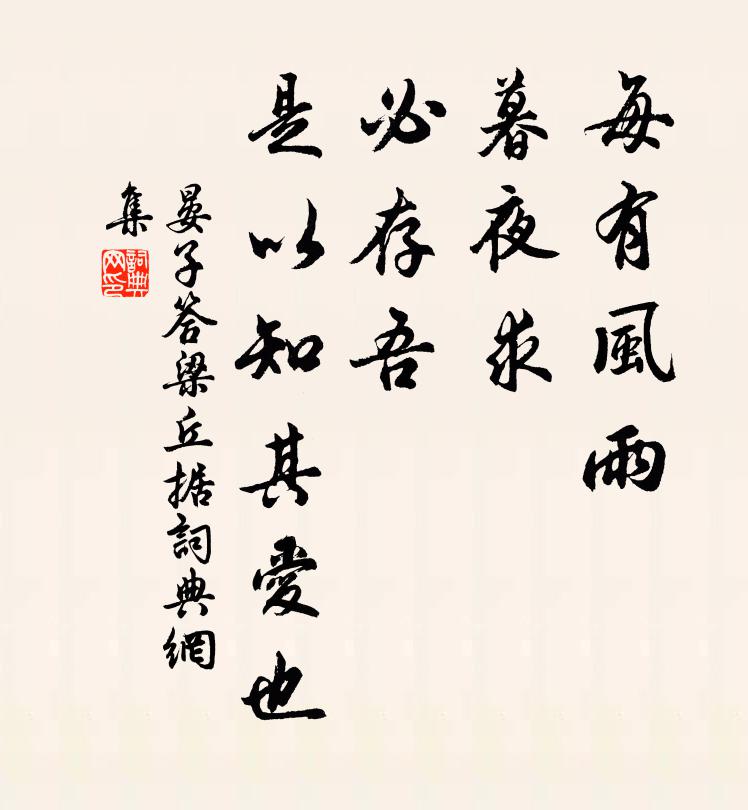 每有風雨
暮夜求
必存吾
是以知其愛也
晏子答梁丘据詞典網
集
詞典
网印